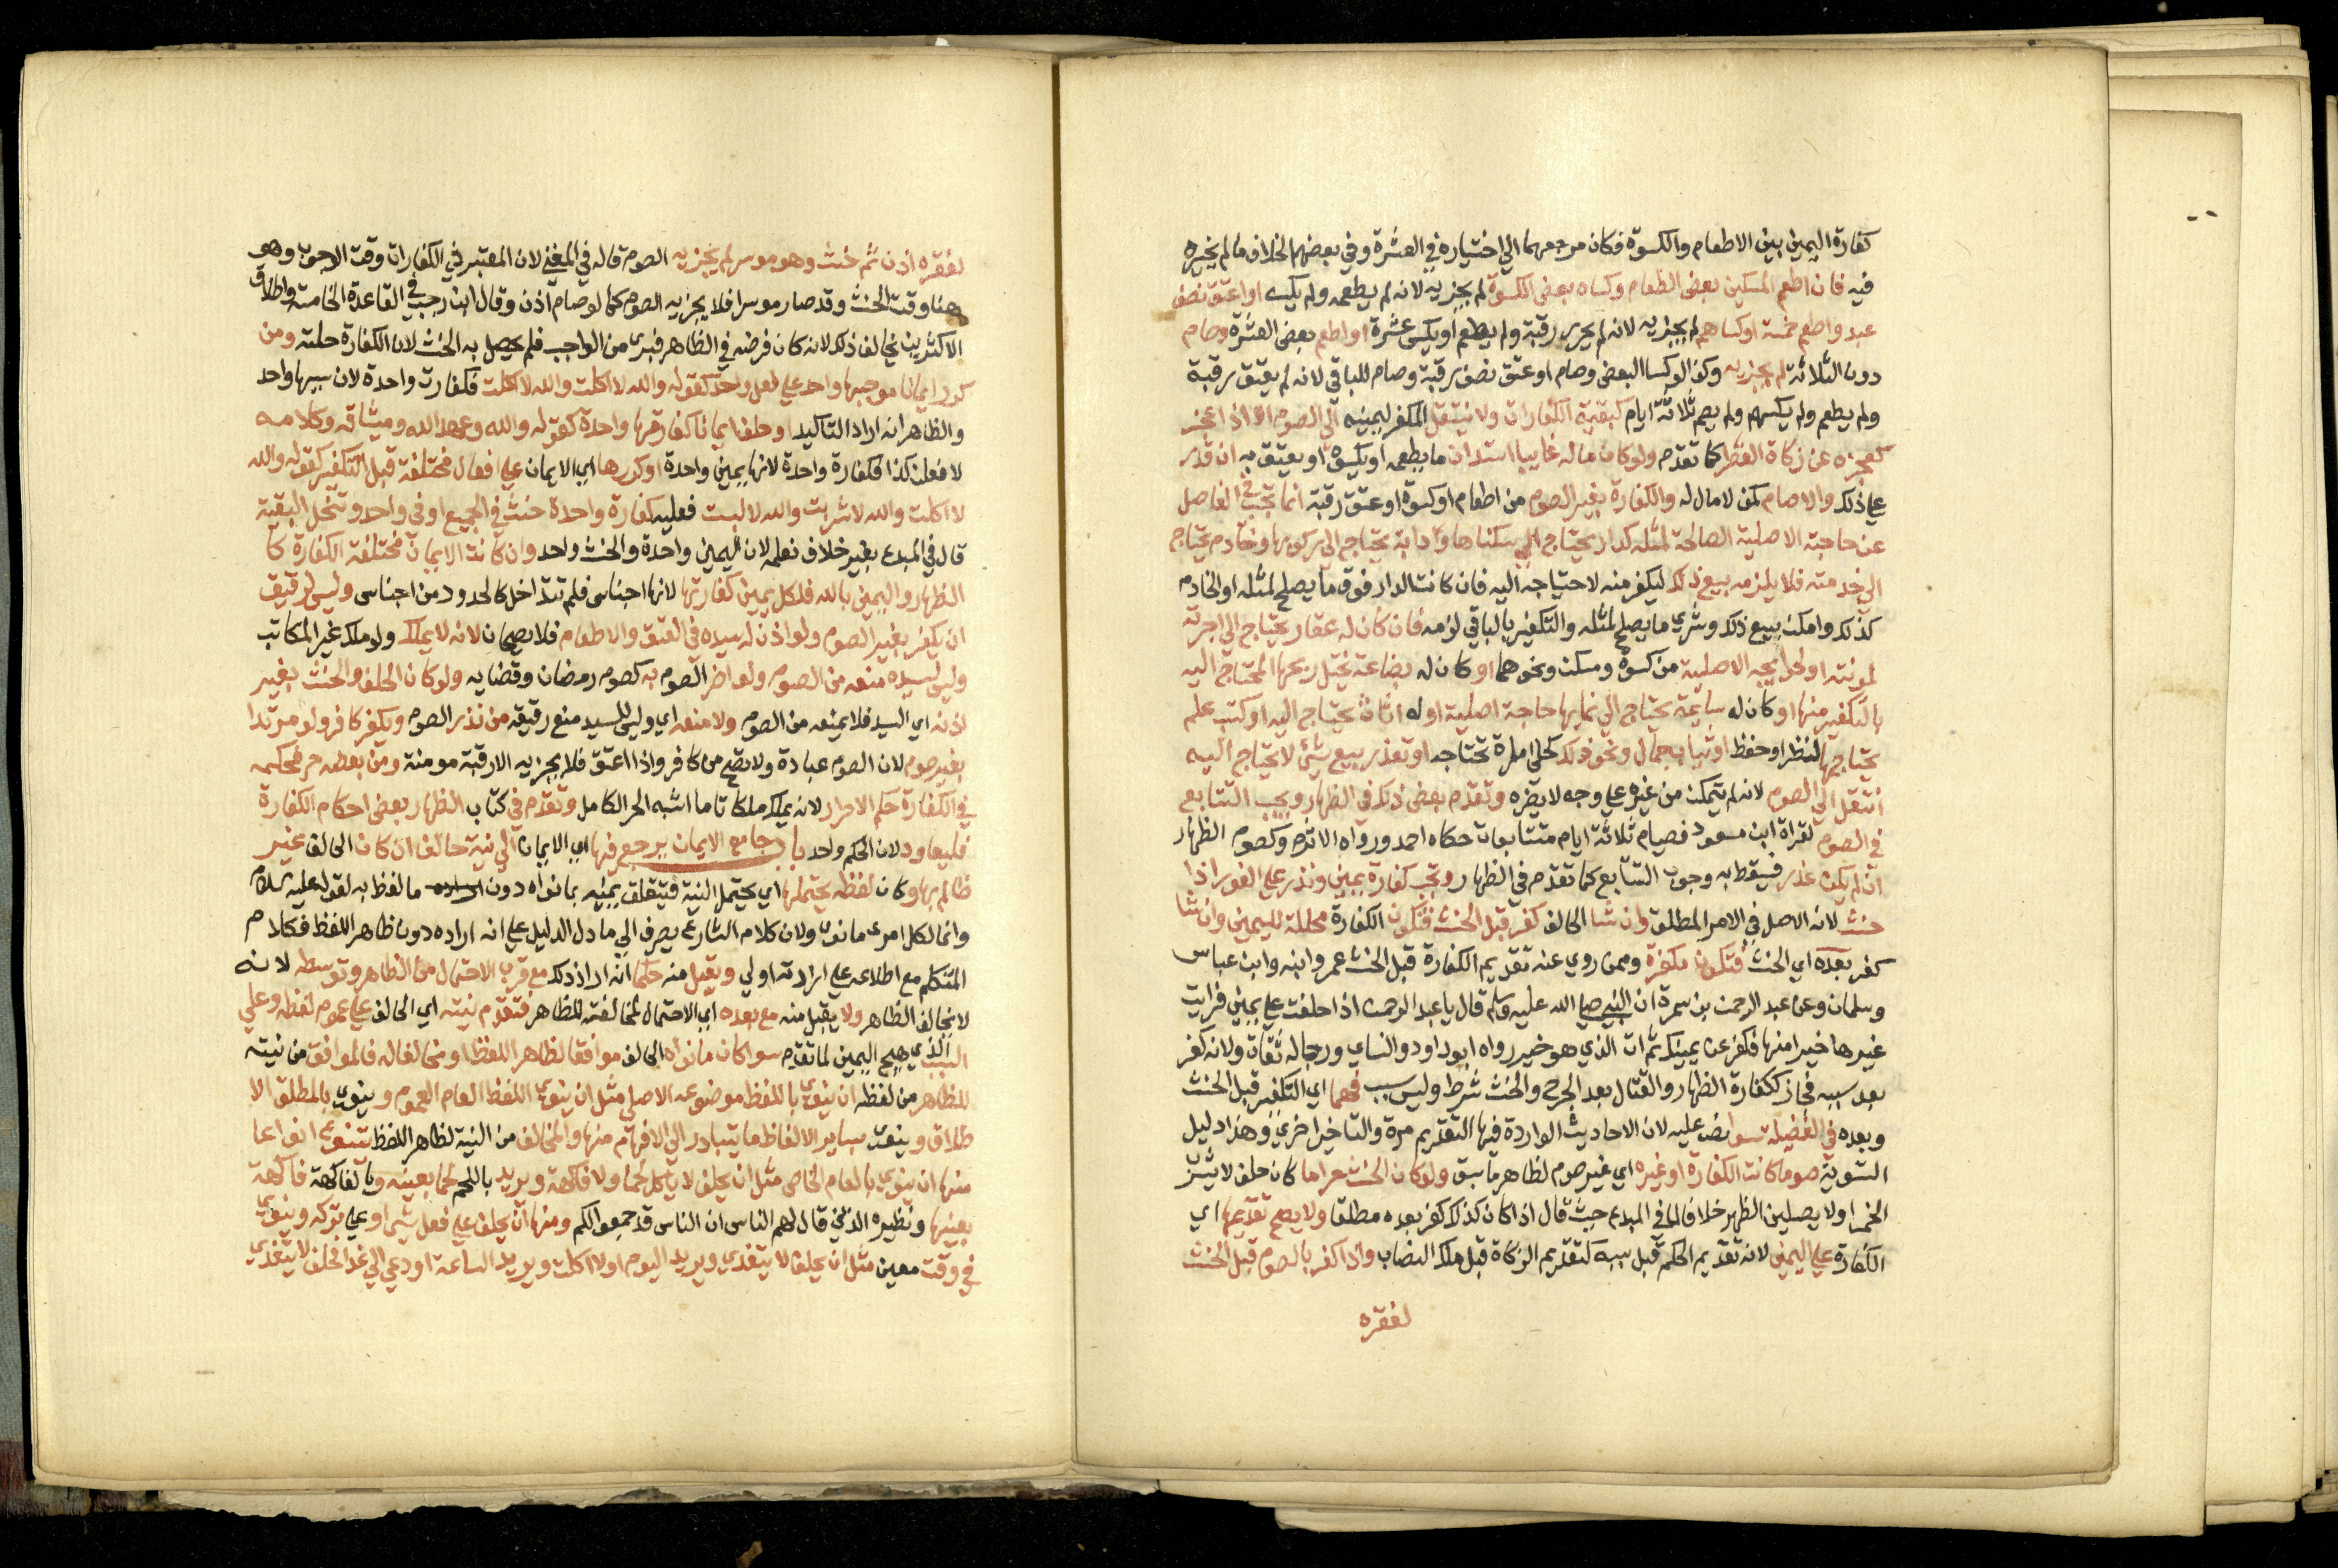 كفارة اليمين بين الاطعام والكسوة فكان مرجعهما الي اختياره في العشرة وفي بعضهم الخلاف ما لم يخيره
فيه فان اطعم المسكين بعض الطعام وكساه بعض الكسوة لم يجزيه لانه لم يطعمه ولم يكسه او اعتق نصف
عبد واطعم خمسة او كساهم لم يجزيه لانه لم يحرر رقبة ولم يطعم او يكسي عشرة او اطعم بعض العشرة وصام
دون الثلاثة لم يجزيه وكذا لو كسا البعض وصام او عتق نصف رقبة وصام للباقي لانه لم يعتق رقبة
ولم يطعم ولم يكسهم ولم يصم ثلاثة ايام كبقية الكفارات ولا ينتقل المكفر ليمينه الي الصوم الا اذا عجز
كعجزه عن زكاة الفطر كما تقدم ولو كان ماله غايبا استدان ما يطعمه او يكسوه او يعتق به ان قدر
علي ذلك والا صام كمن لا مال له والكفارة بغير الصوم من اطعام او كسوة او عتق رقبة انما تجب في الفاضل
عن حاجته الاصلية الصالحة لمثله كدار يحتاج الي سكناها ودابة يحتاج الي ركوبها وخادم يحتاج
الي خدمته فلا يلزمه بيع ذلك ليكفر منه لاحتياجه اليه فان كانت الدار فوق ما يصلح لمثله او الخادم
كذلك وامكن بيع ذلك وشري ما يصلح لمثله والتكفير بالباقي لزمه فان كان له عقار يحتاج الي اجرته
لمونته او لحوايجه الاصلية من كسوة ومسكن ونحوهما او كان له بضاعة يختل ربحها المحتاج اليه
بالتكفير منها او كان له سايمة يحتاج الي نمايها حاجة اصلية او له اثاث يحتاج اليه او كتب علم
يحتاجها لنظر او حفظ او ثياب جمال ونحو ذلك كحلي امراة تحتاجه او تعذر بيع شيئ لا يحتاج اليه
انتقل الي الصوم لانه لم يتمكن من غيره علي وجه لا يضره وتقدم بعض ذلك في الظهار ويجب التتابع
في الصوم لقراة ابن مسعود فصيام ثلاثة ايام متتابعات حكاه احمد ورواه الاثرم وكصوم الظهار
ان لم يكن عذر فيسقط به وجوب التتابع كما تقدم في الظهار وتجب كفارة يمين ونذر علي الفور اذا
حنث لانه الاصل في الامر المطلق وان شا الحالف كفر قبل الحنث فتكون الكفارة محللة لليمين وان شا
كفر بعده اي الحنث فتكون مكفرة وممن روي عنه تقديم الكفارة قبل الحنث عمر وابنه وابن عباس
وسلمان وعن عبد الرحمن بن سمرة ان النبي صلي الله عليه وسلم قال يا عبد الرحمن اذا حلفت علي يمين فرايت
غيرها خيرا منها فكفر عن يمينك ثم ات الذي هو خير رواه ابو داود والنساي ورجاله ثقات ولانه كفر
بعد سببه فجاز ككفارة الظهار والقتل بعد الجرح والحنث شرط وليس سبب فهما اي التكفير قبل الحنث
وبعده في الفضيلة سوا نص عليه لان الاحاديث الواردة فيها التقديم مرة والتاخير اخري وهذا دليل
التسوية صوما كانت الكفارة او غيره اي غير صوم لظاهر ما سبق ولو كان الحنث حراما كان حلف لا يشرب
الخمر او لا يصلين الظهر خلافا لما في المبدع حيث قال اذا كان كذلك كفر بعده مطلقا ولا يصح تقديمها اي
الكفارة علي اليمين لانه تقديم الحكم قبل سببه كتقديم الزكاة قبل ملك النصاب واذا كفر بالصوم قبل الحنث
لفقره
لفقره اذن ثم حنث وهو موسر لم يجزيه الصوم قاله في المغني لان المعتبر في الكفارات وقت الوجوب وهو
هنا وقت الحنث وقد صار موسرا فلا يجزيه الصوم كما لو صام اذن وقال ابن رجب في القاعدة الخامسة واطلاق
الاكثرين يخالف ذلك لانه كان فرضه في الظاهر فبرئ من الواجب فلم يحصل به الحنث لان الكفارة حلته ومن
كرر ايمانا موجبها واحد علي فعل واحد كقوله والله لا اكلت والله لا اكلت فكفارة واحدة لان سببها واحد
والظاهر انه اراد التاكيد او حلف ايمانا كفارتها واحدة كقوله والله وعهد الله وميثاقه وكلامه
لا فعلت كذا فكفارة واحدة لانها يمين واحدة او كررها اي الايمان علي افعال مختلفة قبل التكفير كقوله والله
لا اكلت والله لا شربت والله لا لبست فعليه كفارة واحدة حنث في الجميع او في واحد وتنحل البقية
قال في المبدع بغير خلاف نعلمه لان اليمين واحدة والحنث واحد وان كانت الايمان مختلفة الكفارة كا
الظهار واليمين بالله فلكل يمين كفارتها لانها اجناس فلم تتداخل كالحدود من اجناس وليس لرقيق
ان يكفر بغير الصوم ولو اذن له سيده في العتق والاطعام فلا يصحان لانه لا يملك ولو ملك غير المكاتب
وليس لسيده منعه من الصوم ولو اضر الصوم به كصوم رمضان وقضايه ولو كان الحلف والحنث بغير
اذنه اي السيد فلا يمنعه من الصوم ولا منعه اي وليس للسيد منع رقيقه من نذر الصوم ويكفر كافر ولو مرتدا
بغير صوم لان الصوم عبادة ولا تصح من كافر واذا اعتق فلا يجزيه الا رقبة مومنة ومن بعضه حر فحكمه
في الكفارة حكم الاحرار لانه يملك ملكا تاما اشبه الحر الكامل وتقدم في كتاب الظهار بعض احكام الكفارة
فليعاود لان الحكم واحد باب جامع الايمان يرجع فيها اي الايمان الي نية حالف ان كان الحالف غير
ظالم بها وكان لفظه يحتملها اي يحتمل النية فيتعلق يمينه بما نواه دون ما لفظ به لقوله عليه السلام
وانما لكل امرئ ما نوي ولان كلام الشارع يصرف الي ما دل الدليل علي انه اراده دون ظاهر اللفظ فكلام
المتكلم مع اطلاعه علي ارادته اولي ويقبل منه حكما انه اراد ذلك مع قرب الاحتمال من الظاهر وتوسطه لانه
لا يخالف الظاهر ولا يقبل منه مع بعده اي الاحتمال لمخالفته للظاهر فتقدم نيته اي الحالف علي عموم لفظه وعلي
السبب الذي هيج اليمين لما تقدم سوا كان ما نواه الحالف موافقا لظاهر اللفظ او مخالفا له فالموافق من نيته
للظاهر من لفظه ان ينوي باللفظ موضوعه الاصلي مثل ان ينوي اللفظ العام العموم وينوي بالمطلق الا
طلاق وينوي بساير الالفاظ ما يتبادر الي الافهام منها والمخالف من النية لظاهر اللفظ يتنوع انواعا
منها ان ينوي بالعام الخاص مثل ان يحلف لا ياكل لحما ولا فاكهة ويريد باللحم لحما بعينه وبالفاكهة فاكهة
بعينها ونظيره الذين قال لهم الناس ان الناس قد جمعوا لكم ومنها ان يحلف علي فعل شي او علي تركه وينوي
في وقت معين مثل ان يحلف لا يتغدي ويريد اليوم او لا اكلت ويريد الساعة او دعي الي غدا فحلف لا يتغدي